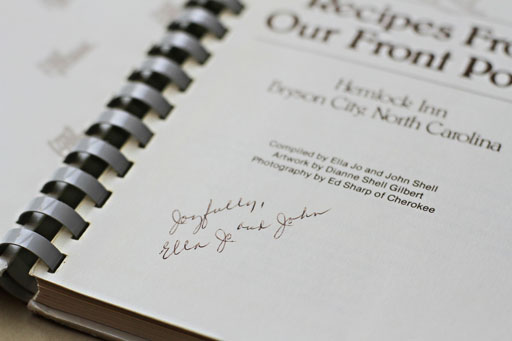 Recipes Fro
Our Front Po
Hemlock Inn
Bryson City, North Carolina
Compiled by Ella Jo and John Shell
Artwork by Dianne Shell Gilbert
Photography by Ed Sharp of Cherokee
Joyfully,
Ella Jo and John